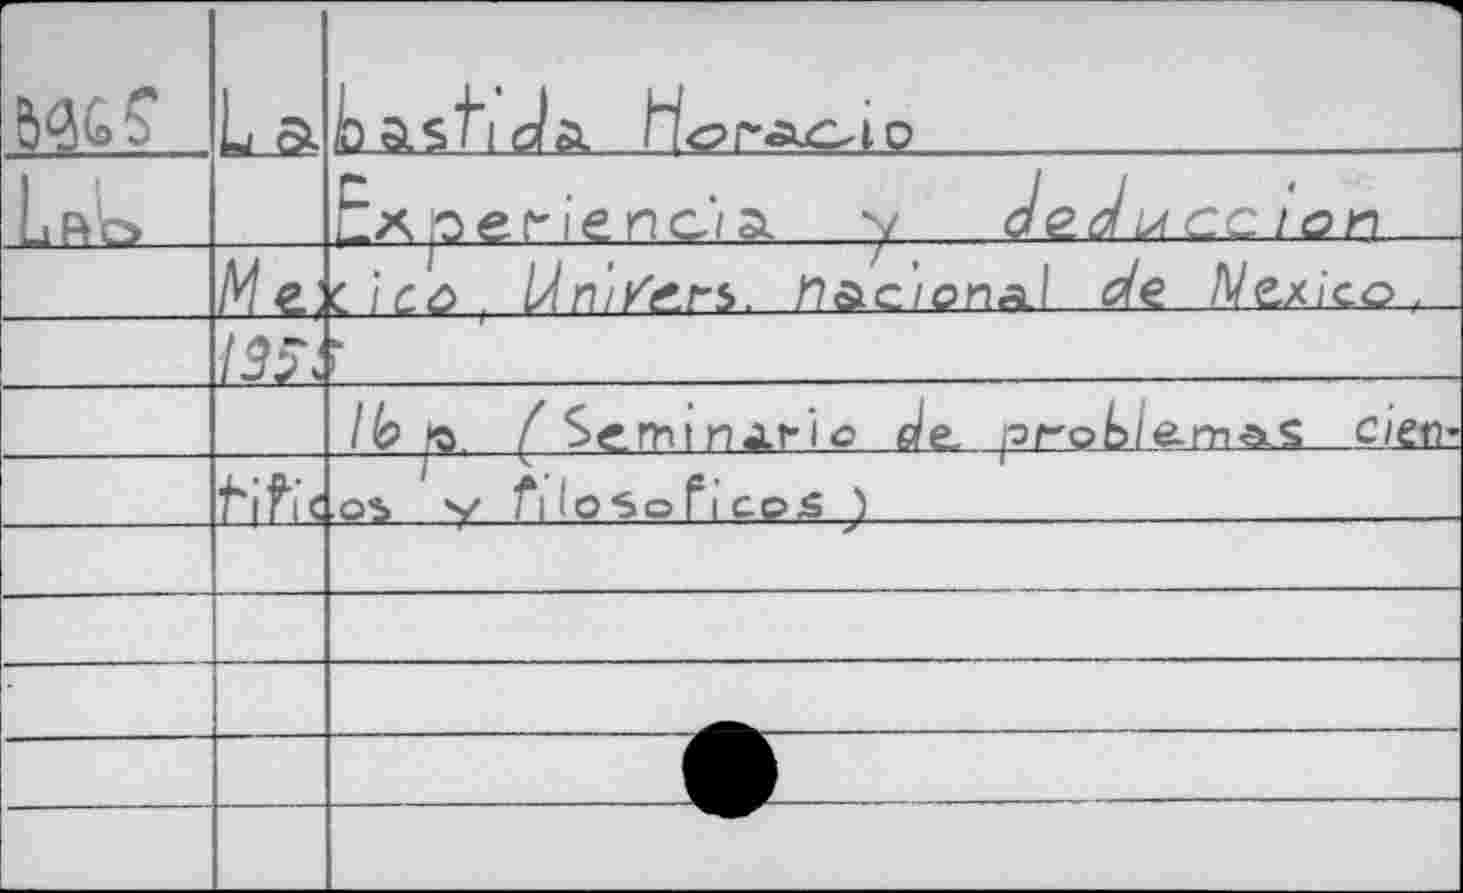 B965 Labastida Horacio
Lab Experiencia y deduccion
Mexico, Univers. nacional de Mexico,
1955
16 p. (Seminario de problemas cien-
tificos y filosoficos)